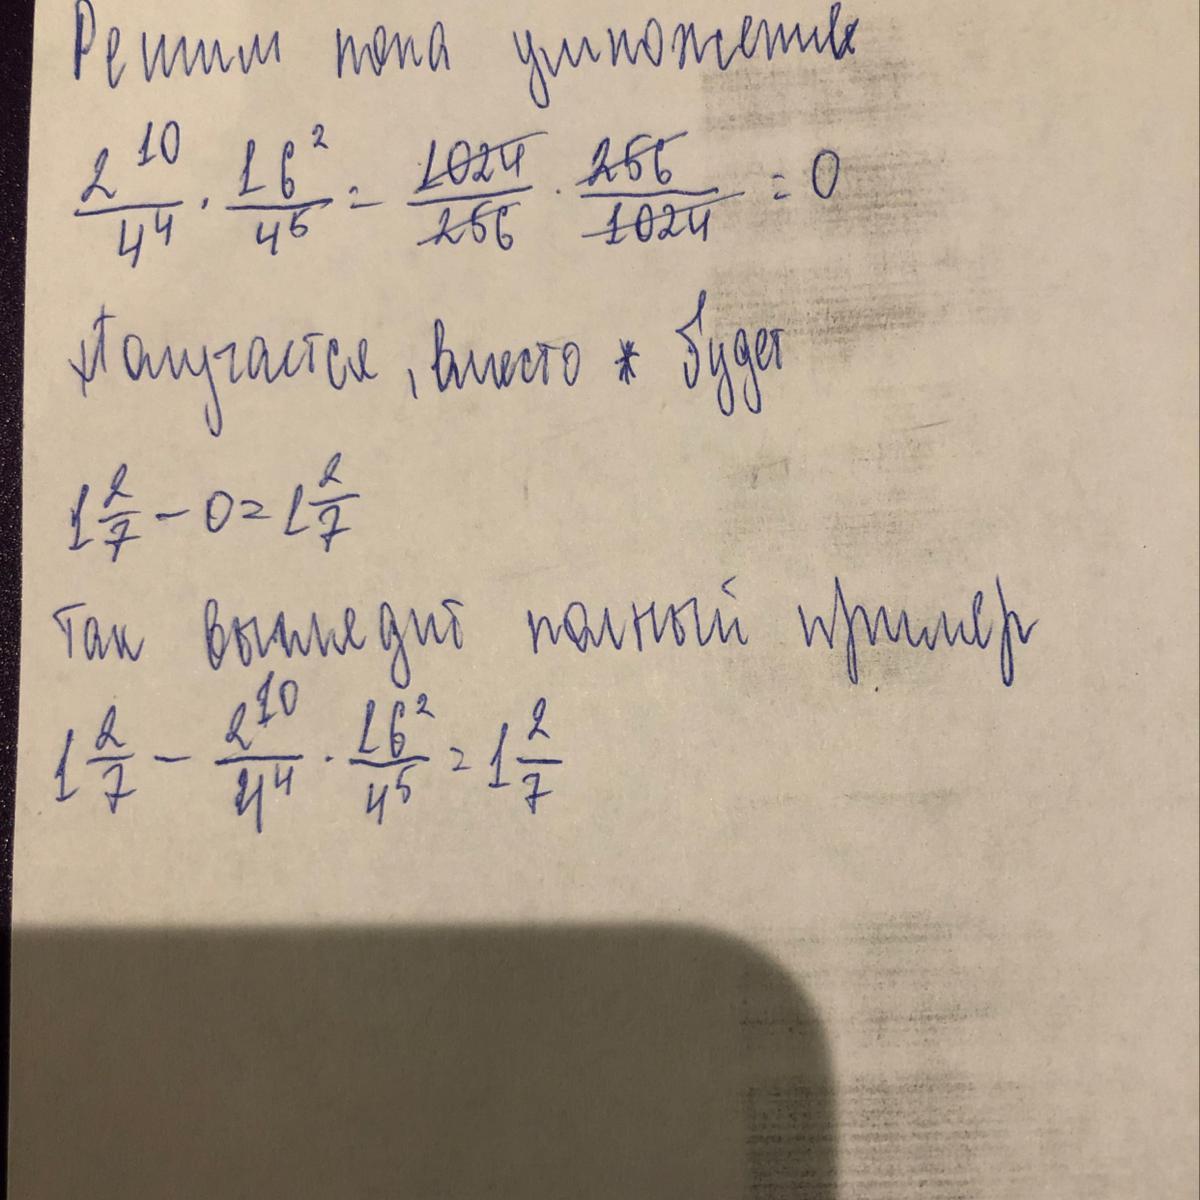 Решим пока умножение
2^10/4^4 · 16^2/4^5 = 1024/256 · 256/1024 = 0
Получается, вместо * будет
1 2/7 - 0 = 1 2/7
Так выглядит полный пример
1 2/7 - 2^10/4^4 · 16^2/4^5 = 1 2/7